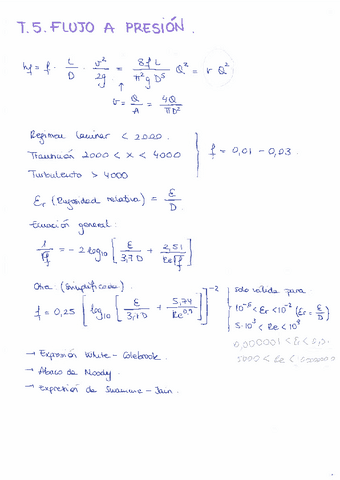 T.5. FLUJO A PRESIÓN.
hf = f · L/D · v²/2g = 8fL/π²gD⁵ Q² = r Q²
↑
v = Q/A = 4Q/πD²
Régimen laminar < 2000
Transición 2000 < x < 4000
Turbulento > 4000
f = 0,01 - 0,03.
Er (Rugosidad relativa) = ε/D
Ecuación general:
1/√f = -2 log₁₀ [ε/3,7D + 2,51/Re√f]
Otra (simplificada)
f = 0,25 [log₁₀ [ε/3,7D + 5,74/Re^0,9]]⁻²
solo válida para
10⁻⁶ < Er < 10⁻² (Er = ε/D)
5·10³ < Re < 10⁸
→ Expresión White-Colebrook
→ Ábaco de Moody.
→ Expresión de Swamme-Jain.